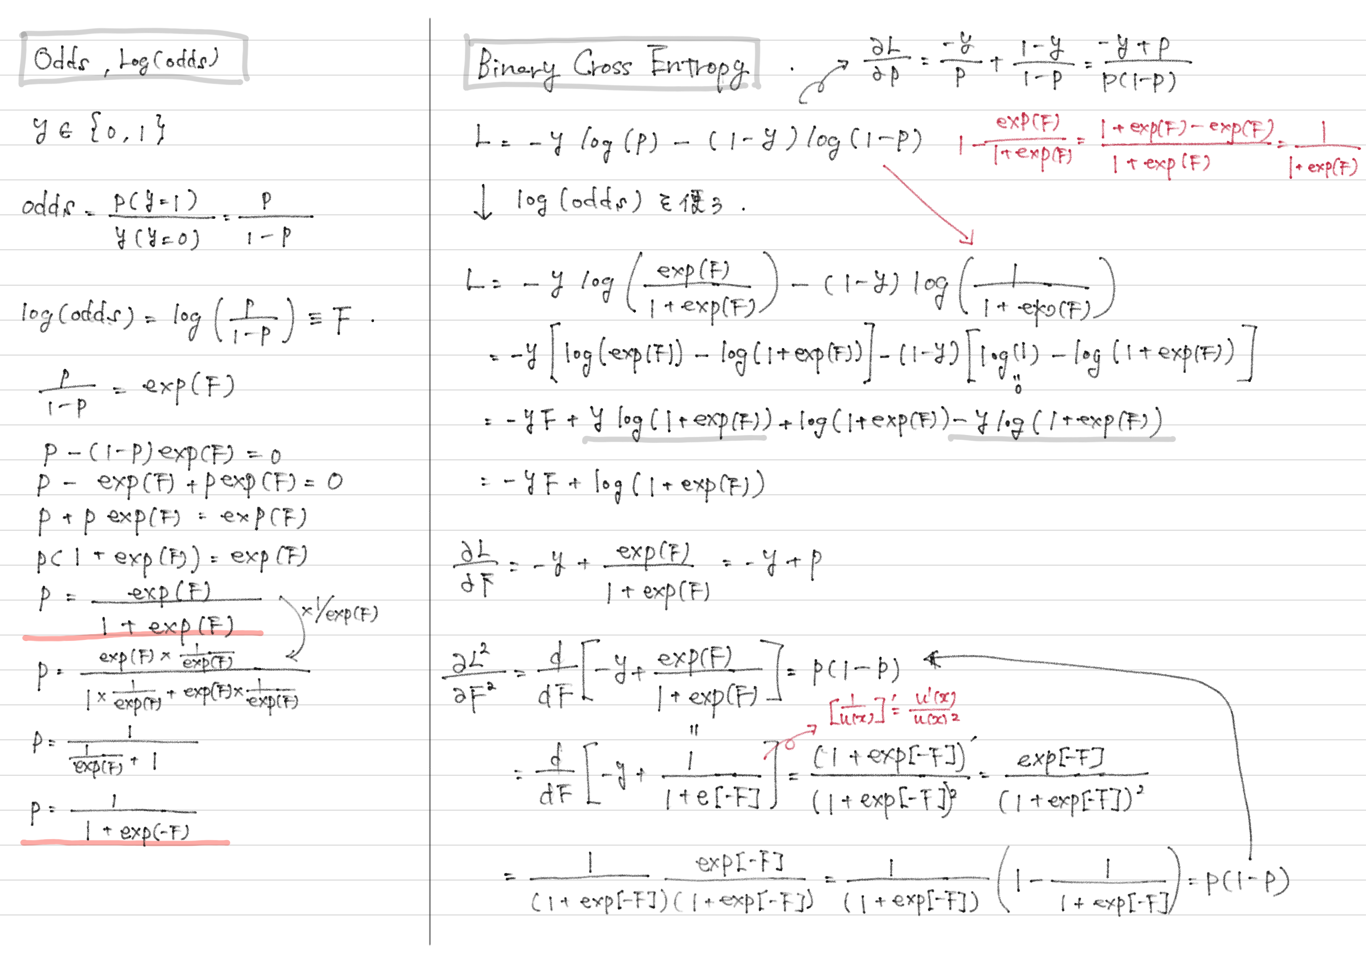 Odds, Log(odds)
y ∈ {0, 1}
odds = p(y=1) / y(y=0) = p / 1-p
log(odds) = log(p / 1-p) ≡ F.
p / 1-p = exp(F)
p - (1-p)exp(F) = 0
p - exp(F) + p exp(F) = 0
p + p exp(F) = exp(F)
p(1 + exp(F)) = exp(F)
p = exp(F) / 1 + exp(F)
× 1/exp(F)
p = exp(F) × 1/exp(F) / 1 × 1/exp(F) + exp(F) × 1/exp(F)
p = 1 / 1/exp(F) + 1
p = 1 / 1 + exp(-F)
Binary Cross Entropy.
∂L/∂p = -y/p + 1-y/1-p = -y+p / p(1-p)
L = -y log(p) - (1-y) log(1-p)
1 - exp(F) / 1+exp(F) = 1+exp(F)-exp(F) / 1+exp(F) = 1 / 1+exp(F)
↓ log(odds) を使う.
L = -y log(exp(F) / 1+exp(F)) - (1-y) log(1 / 1+exp(F))
= -y[log(exp(F)) - log(1+exp(F))] - (1-y)[log(1) - log(1+exp(F))]
= 0
= -yF + y log(1+exp(F)) + log(1+exp(F)) - y log(1+exp(F))
= -yF + log(1+exp(F))
∂L/∂F = -y + exp(F) / 1+exp(F) = -y + p
∂L²/∂F² = d/dF [-y + exp(F) / 1+exp(F)] = p(1-p)
[1/u(x)]' = u'(x) / u(x)²
= d/dF [-y + 1 / 1+e[-F]] = (1+exp[-F])' / (1+exp[-F])² = exp[-F] / (1+exp[-F])²
= 1 / (1+exp[-F]) exp[-F] / (1+exp[-F]) = 1 / (1+exp[-F]) (1 - 1 / 1+exp[-F]) = p(1-p)